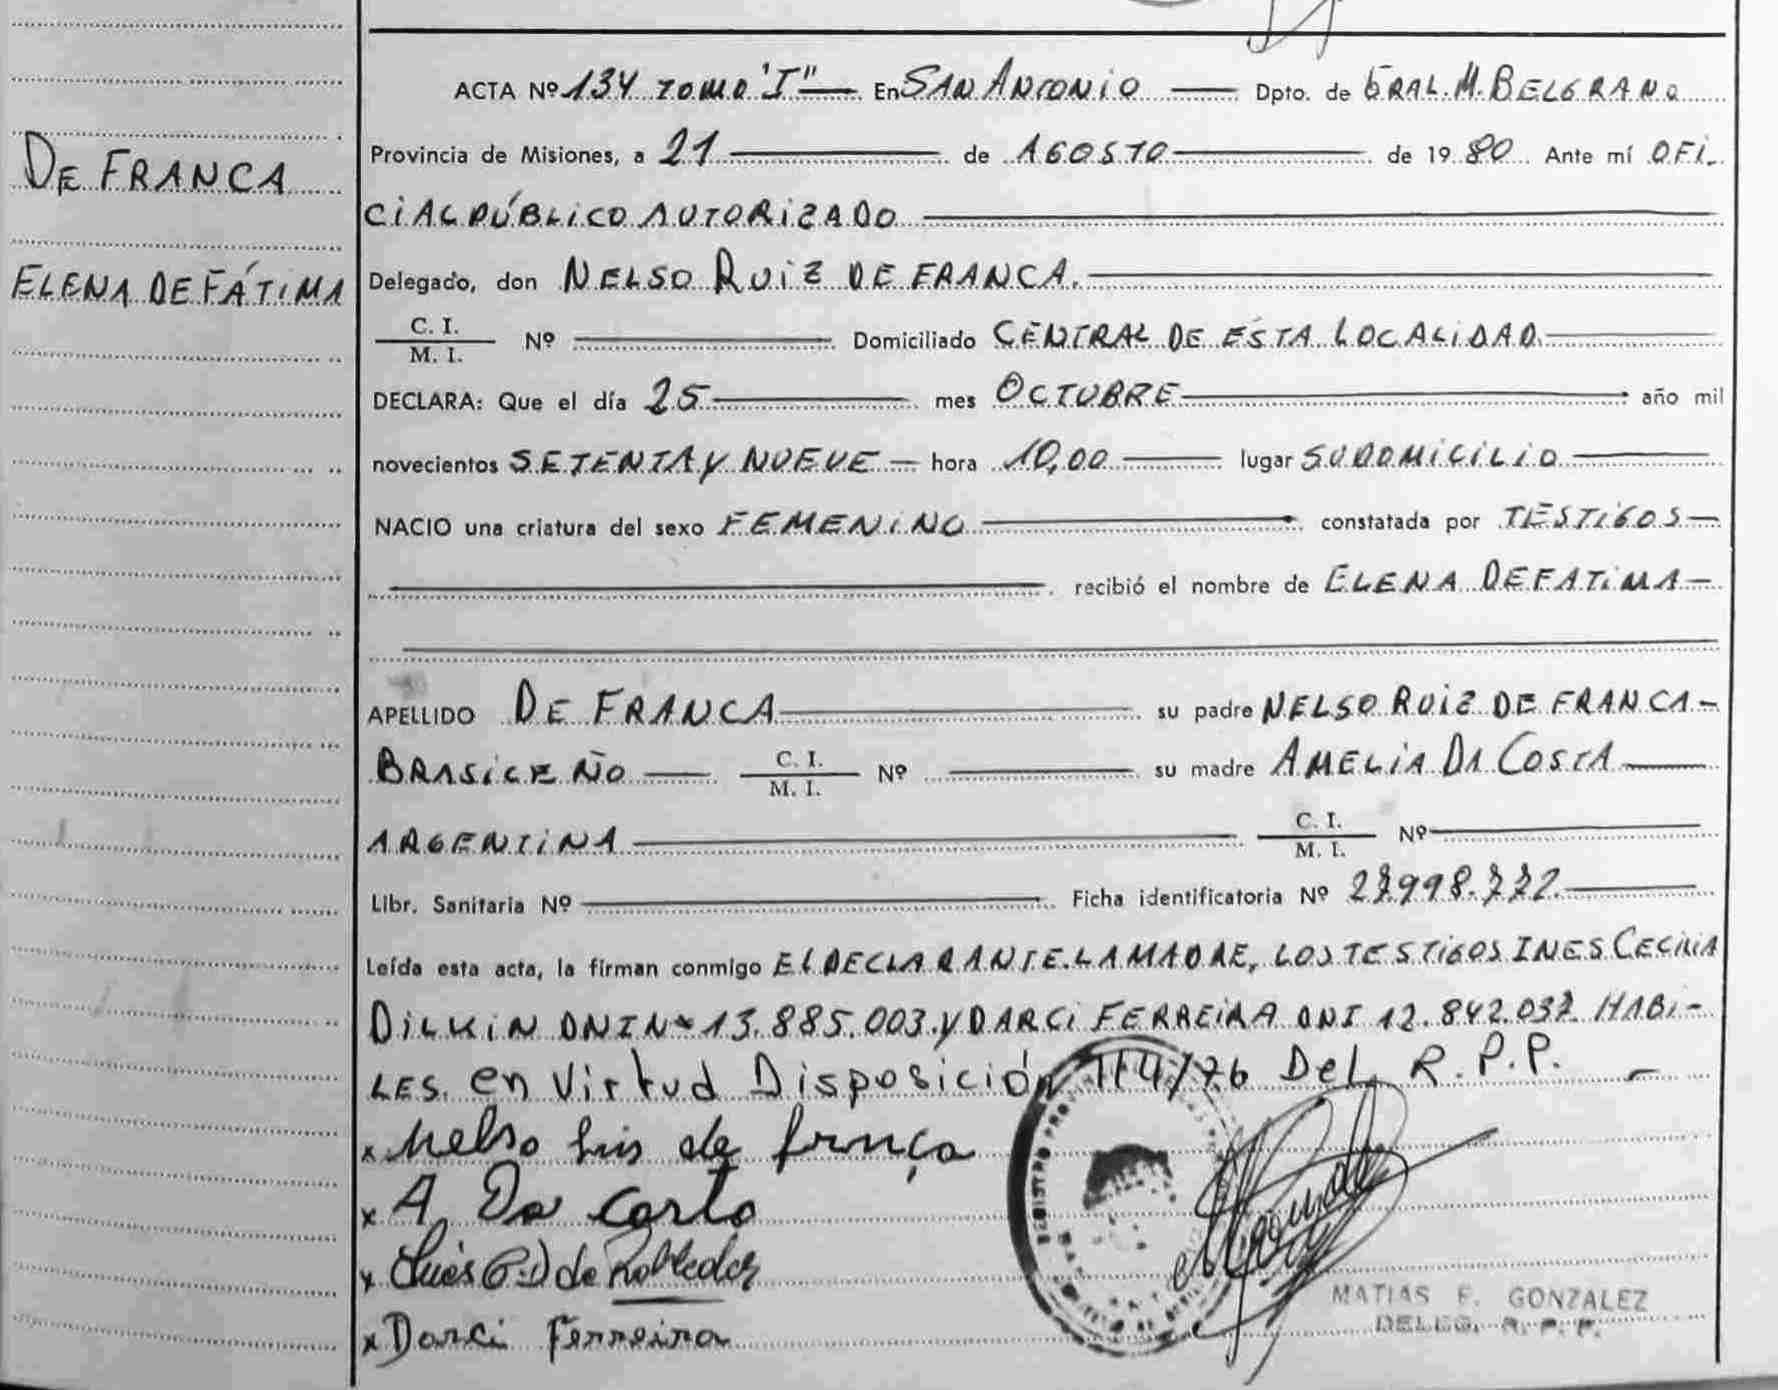 DE FRANCA
ELENA DE FÁTIMA
ACTA Nº 134 TOMO "I" En SAN ANTONIO Dpto. de GRAL. M. BELGRANO
Provincia de Misiones, a 21 de AGOSTO de 1980 Ante mí OFI-
CIAL PÚBLICO AUTORIZADO
Delegado, don NELSO RUIZ DE FRANCA.
C. I.
M. I. Nº Domiciliado CENTRAL DE ESTA LOCALIDAD
DECLARA: Que el día 25 mes OCTUBRE año mil
novecientos SETENTA Y NUEVE hora 10,00 lugar SU DOMICILIO
NACIO una criatura del sexo FEMENINO constatada por TESTIGOS
recibió el nombre de ELENA DE FATIMA
APELLIDO DE FRANCA su padre NELSO RUIZ DE FRANCA
BRASILEÑO C. I. M. I. Nº su madre AMELIA DA COSTA
ARGENTINA C. I. M. I. Nº
Libr. Sanitaria Nº Ficha identificatoria Nº 27.998.772
Leída esta acta, la firman conmigo EL DECLARANTE. LA MADRE, LOS TESTIGOS INES CECILIA
DILKIN DNI Nº 13.885.003. Y DARCI FERREIRA DNI 12.842.037 HABI-
LES. en Virtud Disposición 114/76 Del R.P.P.
x Nelso Luis de França
x A Da Costa
x Inés C. D de Robledo
x Darci Ferreira
MATIAS F. GONZALEZ
DELEG. R. P. P.